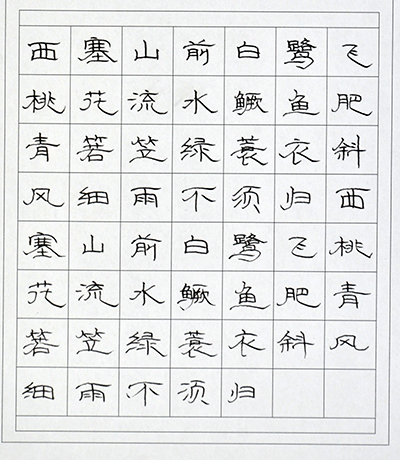 西塞山前白鹭飞
桃花流水鳜鱼肥
青箬笠绿蓑衣斜
风细雨不须归西
塞山前白鹭飞桃
花流水鳜鱼肥青
箬笠绿蓑衣斜风
细雨不须归